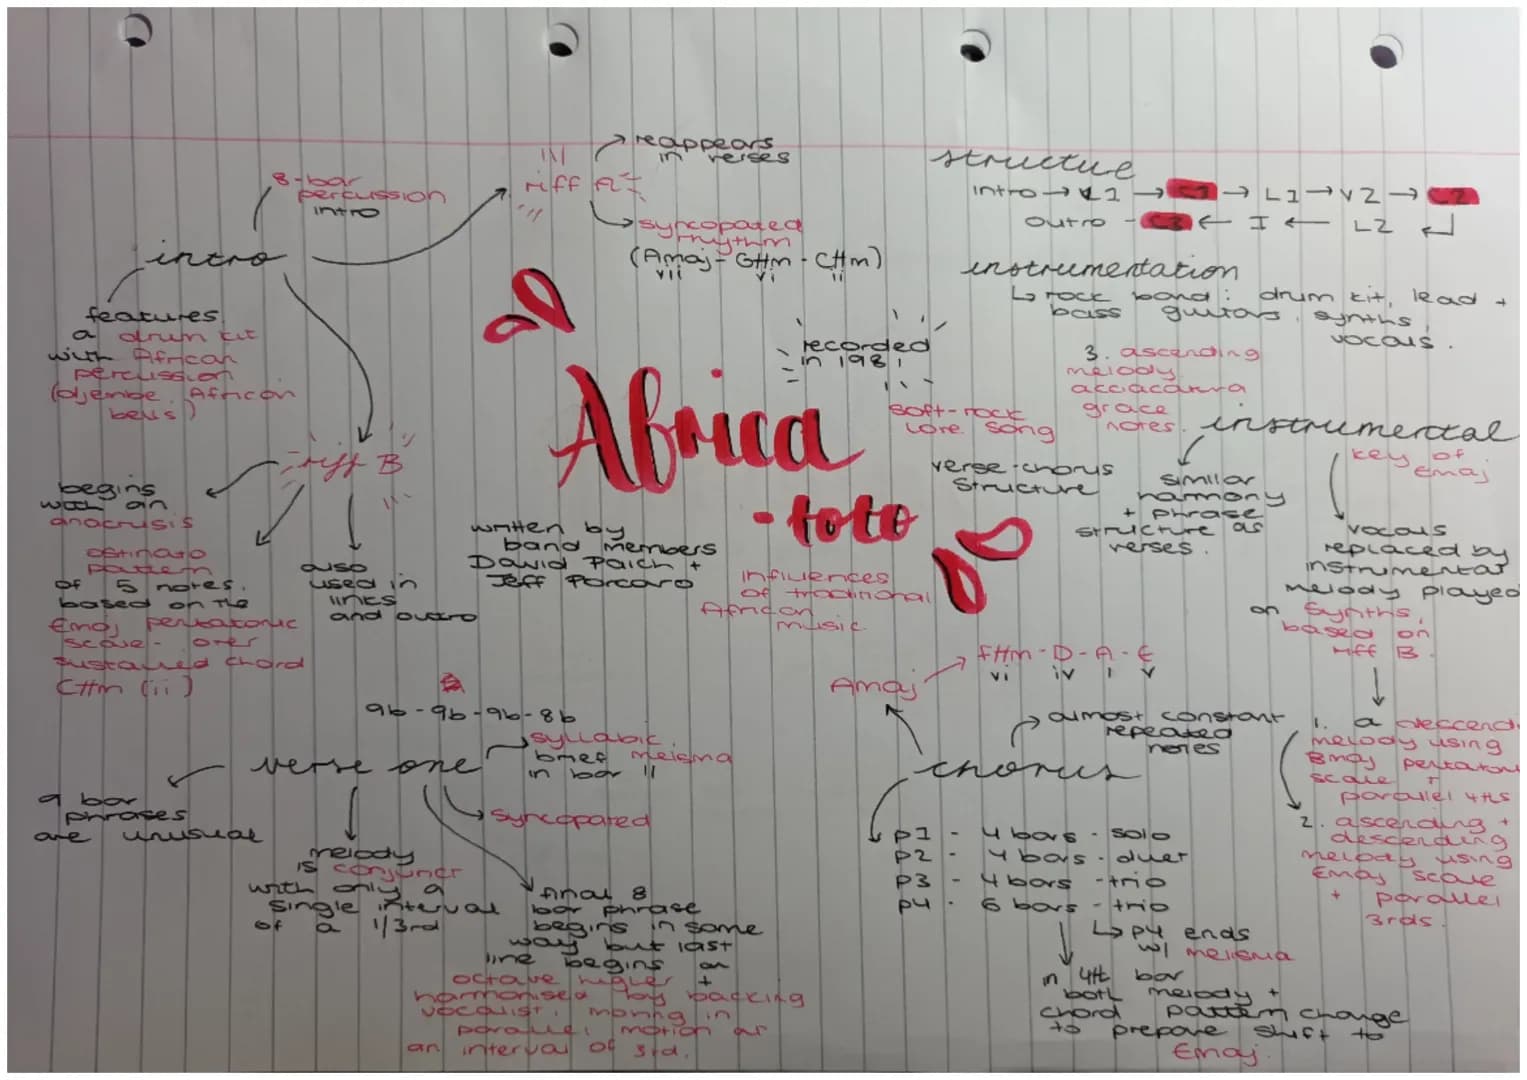 8-bar
percussion
intro
intro
features
a drum kit
with African
percussion
(djembe, African
bells)
riff A
reappears
in verses
syncopated
rhythm
(Amaj - G#m - C#m)
vii vi ii
structue
intro → V1 → C1 → L1 → V2 → C2
outro - C3 ← I ← L2
instrumentation
↳ rock band: drum kit, lead +
bass guitars, synths,
vocals.
recorded
in 1981
Africa
- toto
soft-rock
love song
verse-chorus
structure
written by
band members
David Paich +
Jeff Porcaro
influences
of traditional
African
music
riff B
begins
with an
anacrusis
ostinato
pattern
of 5 notes.
based on the
Emaj pentatonic
scale - over
sustained chord
C#m (ii)
also
used in
links
and outro
instrumental
key of
Emaj
similar
harmony
+ phrase
structure as
verses.
vocals
replaced by
instrumental
melody played
on synths,
based on
riff B.
1. a descendi
melody using
Bmaj pentaton
scale +
parallel 4ths
2. ascending +
descending
melody using
Emaj scale
+ parallel
3rds.
3. ascending
melody
acciacatura
grace
notes.
9b - 9b - 9b - 8b
verse one
syllabic,
brief melsma
in bar 11
syncopated
9 bar
phrases
are unusual
melody
is conjunct
with only a
single interval
of a 1/3rd
final 8
bar phrase
begins in same
way but last
line begins an
octave higher +
harmonised by backing
vocalist, moving in
parallel motion at
an interval of 3rd.
chorus
Amaj → F#m - D - A - E
vi iv i v
almost constant
repeated
notes
p1 - 4 bars - solo
p2 - 4 bars - duet
p3 - 4 bars - trio
p4 - 6 bars - trio
↳ p4 ends
w/ melisma
in 4th bar
both melody +
chord pattern change
to prepare shift to
Emaj.